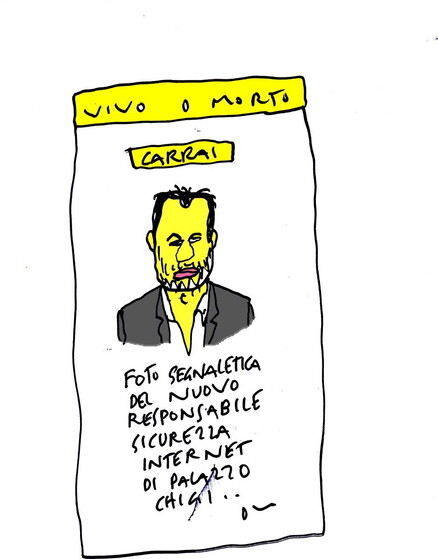 VIVO O MORTO
CARRAI
FOTO SEGNALETICA
DEL NUOVO
RESPONSABILE
SICUREZZA
INTERNET
DI PALAZZO
CHIGI..